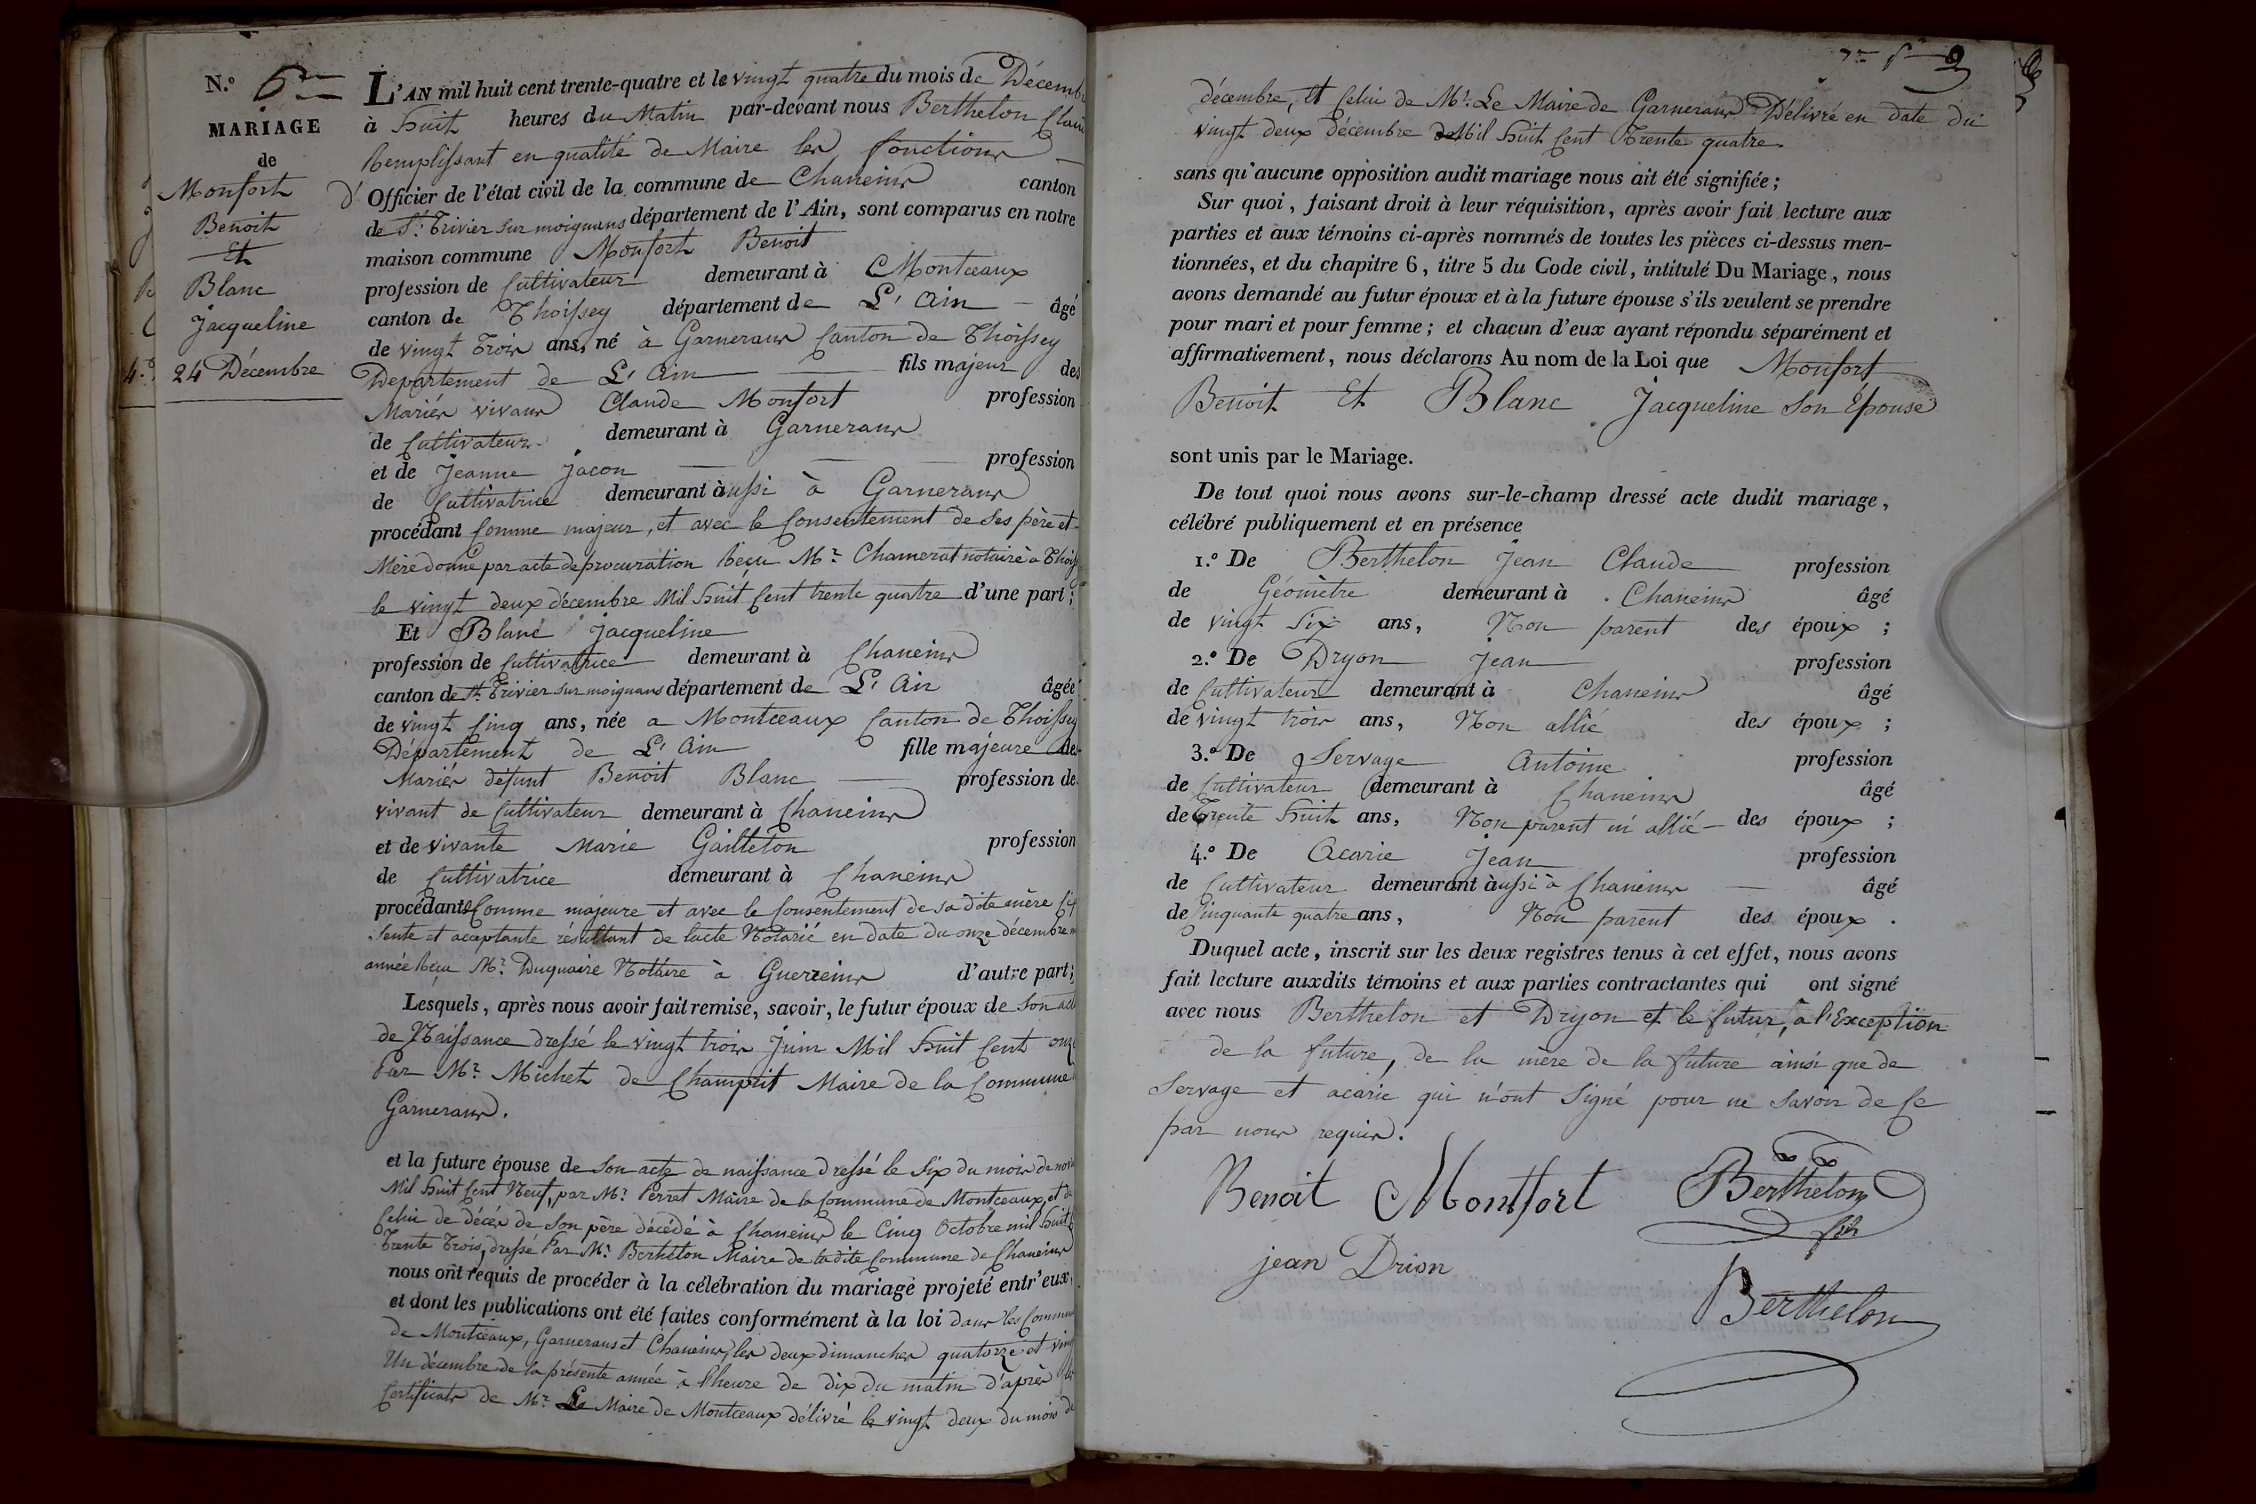 N.º 6me
MARIAGE
de
Monfort
Benoit
Et
Blanc
Jacqueline
24 Décembre
L'AN mil huit cent trente-quatre et le vingt quatre du mois de Décemb
à huit heures du Matin par-devant nous Berthelon Clau
Remplissant en qualité de Maire les fonctions
d' Officier de l'état civil de la commune de Chaneins canton
de St. Trivier sur moignans département de l'Ain, sont comparus en notre
maison commune Monfort Benoit
profession de Cultivateur demeurant à Montceaux
canton de Thoissey département de L'Ain âgé
de vingt Trois ans, né à Garnerans Canton de Thoissey
Département de L'Ain fils majeur des
Mariés vivans Claude Monfort profession
de Cultivateur demeurant à Garnerans
et de Jeanne Jacon profession
de Cultivatrice demeurant àussi à Garnerans
procédant Comme majeur, et avec le Consentement de ses père et
Mère donné par acte de procuration Reçu Mr. Chamerat notaire à Thois
le vingt deux décembre Mil huit Cent trente quatre d'une part ;
Et Blanc Jacqueline
profession de Cultivatrice demeurant à Chaneins
canton de St. Trivier sur moignans département de L'Ain âgée
de vingt Cinq ans, née a Montceaux Canton de Thoissey
Département de L'Ain fille majeure des
Mariés défunt Benoit Blanc profession de
vivant de Cultivateur demeurant à Chaneins
et de vivante Marie Gailleton profession
de Cultivatrice demeurant à Chaneins
procédante Comme majeure et avec le Consentement de sa dite mère
sente et acceptante résultant de lacte Notarié en date du onze décembre
année Reçu Mr. Duquaire Notaire à Guerreins d'autre part ;
Lesquels, après nous avoir fait remise, savoir, le futur époux de Son act
de Naissance dressé le vingt trois Juin Mil huit Cent onze
Par Mr. Michet de Champrit Maire de la Commune
Garnerans.
et la future épouse de Son acte de naissance dressé le Six du mois de nov
Mil huit Cent Neuf, par Mr. Perret Maire de la Commune de Montceaux, et de
Celui de décès de Son père décédé à Chaneins le Cinq Octobre mil huit
Trente Trois, dressé Par Mr. Berthelon Maire de la dite Commune de Chaneins
nous ont requis de procéder à la célébration du mariage projeté entr'eux,
et dont les publications ont été faites conformément à la loi dans les Commun
de Montceaux, Garnerans et Chaneins, les deux dimanches quatorze et ving
Un décembre de la présente année à l'heure de dix du matin d'après les
Certificats de Mr. Le Maire de Montceaux délivré le vingt deux du mois de
décembre, et Celui de Mr. Le Maire de Garnerans Délivré en date du
vingt deux décembre Mil huit Cent Trente quatre.
sans qu'aucune opposition audit mariage nous ait été signifiée ;
Sur quoi, faisant droit à leur réquisition, après avoir fait lecture aux
parties et aux témoins ci-après nommés de toutes les pièces ci-dessus men-
tionnées, et du chapitre 6, titre 5 du Code civil, intitulé Du Mariage, nous
avons demandé au futur époux et à la future épouse s'ils veulent se prendre
pour mari et pour femme ; et chacun d'eux ayant répondu séparément et
affirmativement, nous déclarons Au nom de la Loi que Monfort
Benoit Et Blanc Jacqueline Son Épouse
sont unis par le Mariage.
De tout quoi nous avons sur-le-champ dressé acte dudit mariage,
célébré publiquement et en présence
1.º De Berthelon Jean Claude profession
de Géomètre demeurant à Chaneins âgé
de vingt Six ans, Non parent des époux ;
2.º De Dryon Jean profession
de Cultivateur demeurant à Chaneins âgé
de vingt trois ans, Non allié des époux ;
3.º De Servage Antoine profession
de Cultivateur demeurant à Chaneins âgé
de Trente huit ans, Non parent ni allié des époux ;
4.º De Acarie Jean profession
de Cultivateur demeurant àussi à Chaneins âgé
de Cinquante quatre ans, Non parent des époux .
Duquel acte, inscrit sur les deux registres tenus à cet effet, nous avons
fait lecture auxdits témoins et aux parties contractantes qui ont signé
avec nous Berthelon et Dryon et le futur, à l'Exception
de la future, de la mère de la future ainsi que de
Servage et acarie qui n'ont Signé pour ne Savoir de Ce
par nous requis.
Benoit Montfort Berthelon
fils
jean Drion
Berthelon